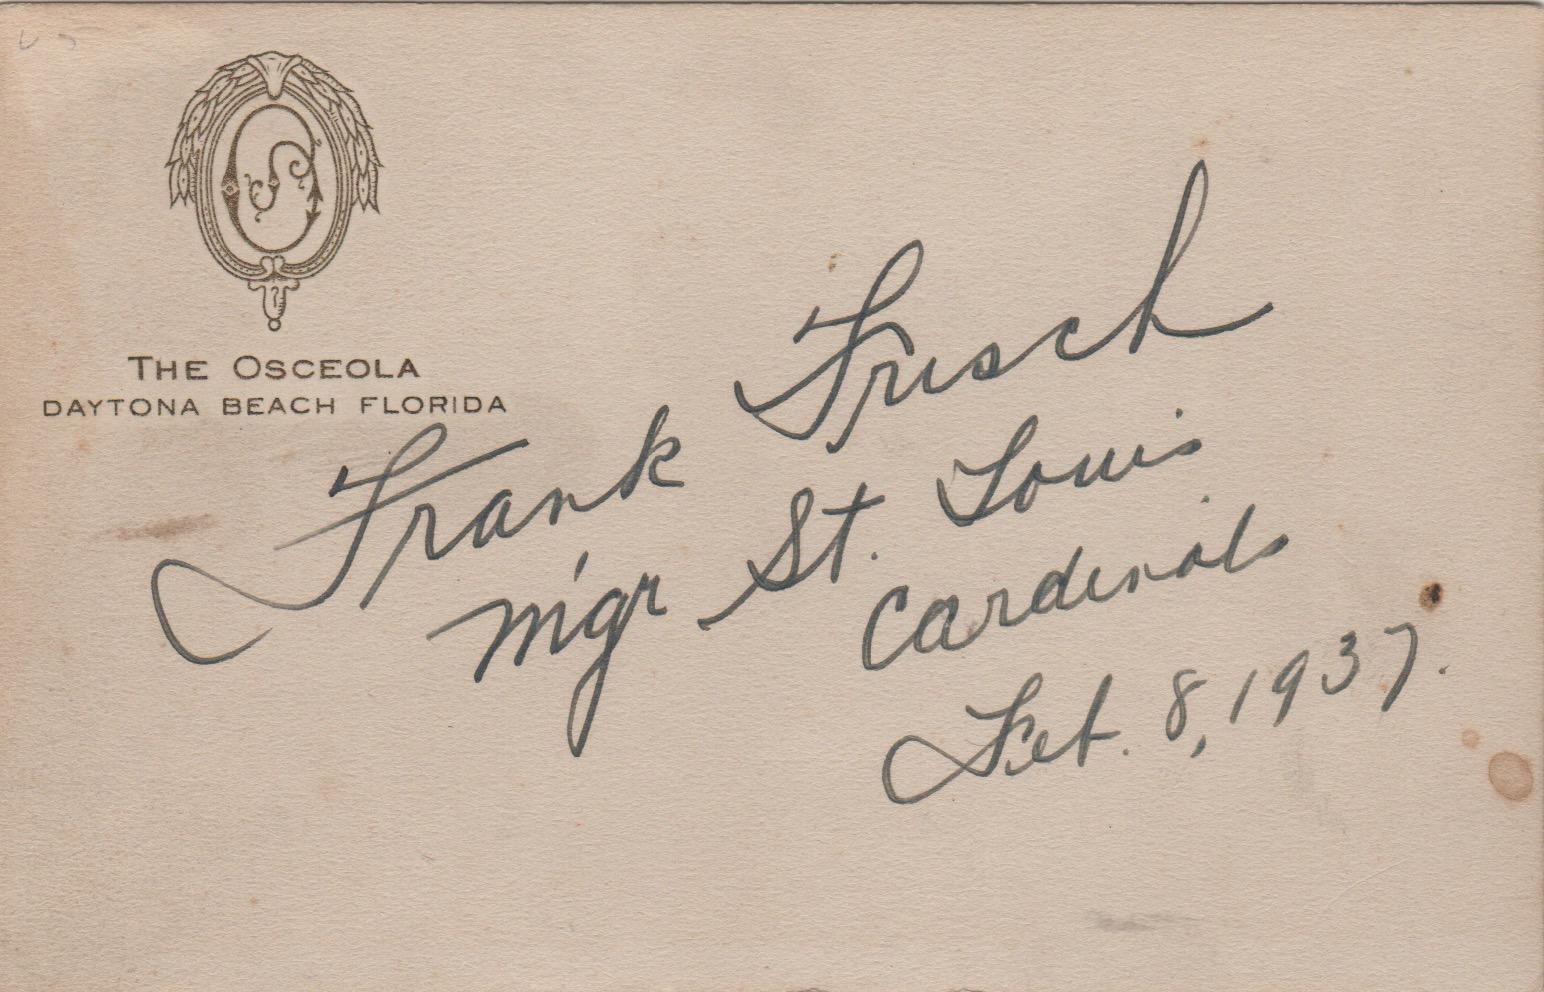 THE OSCEOLA
DAYTONA BEACH FLORIDA
Frank Frisch
M'gr St. Louis
Cardinals
Feb. 8, 1937.